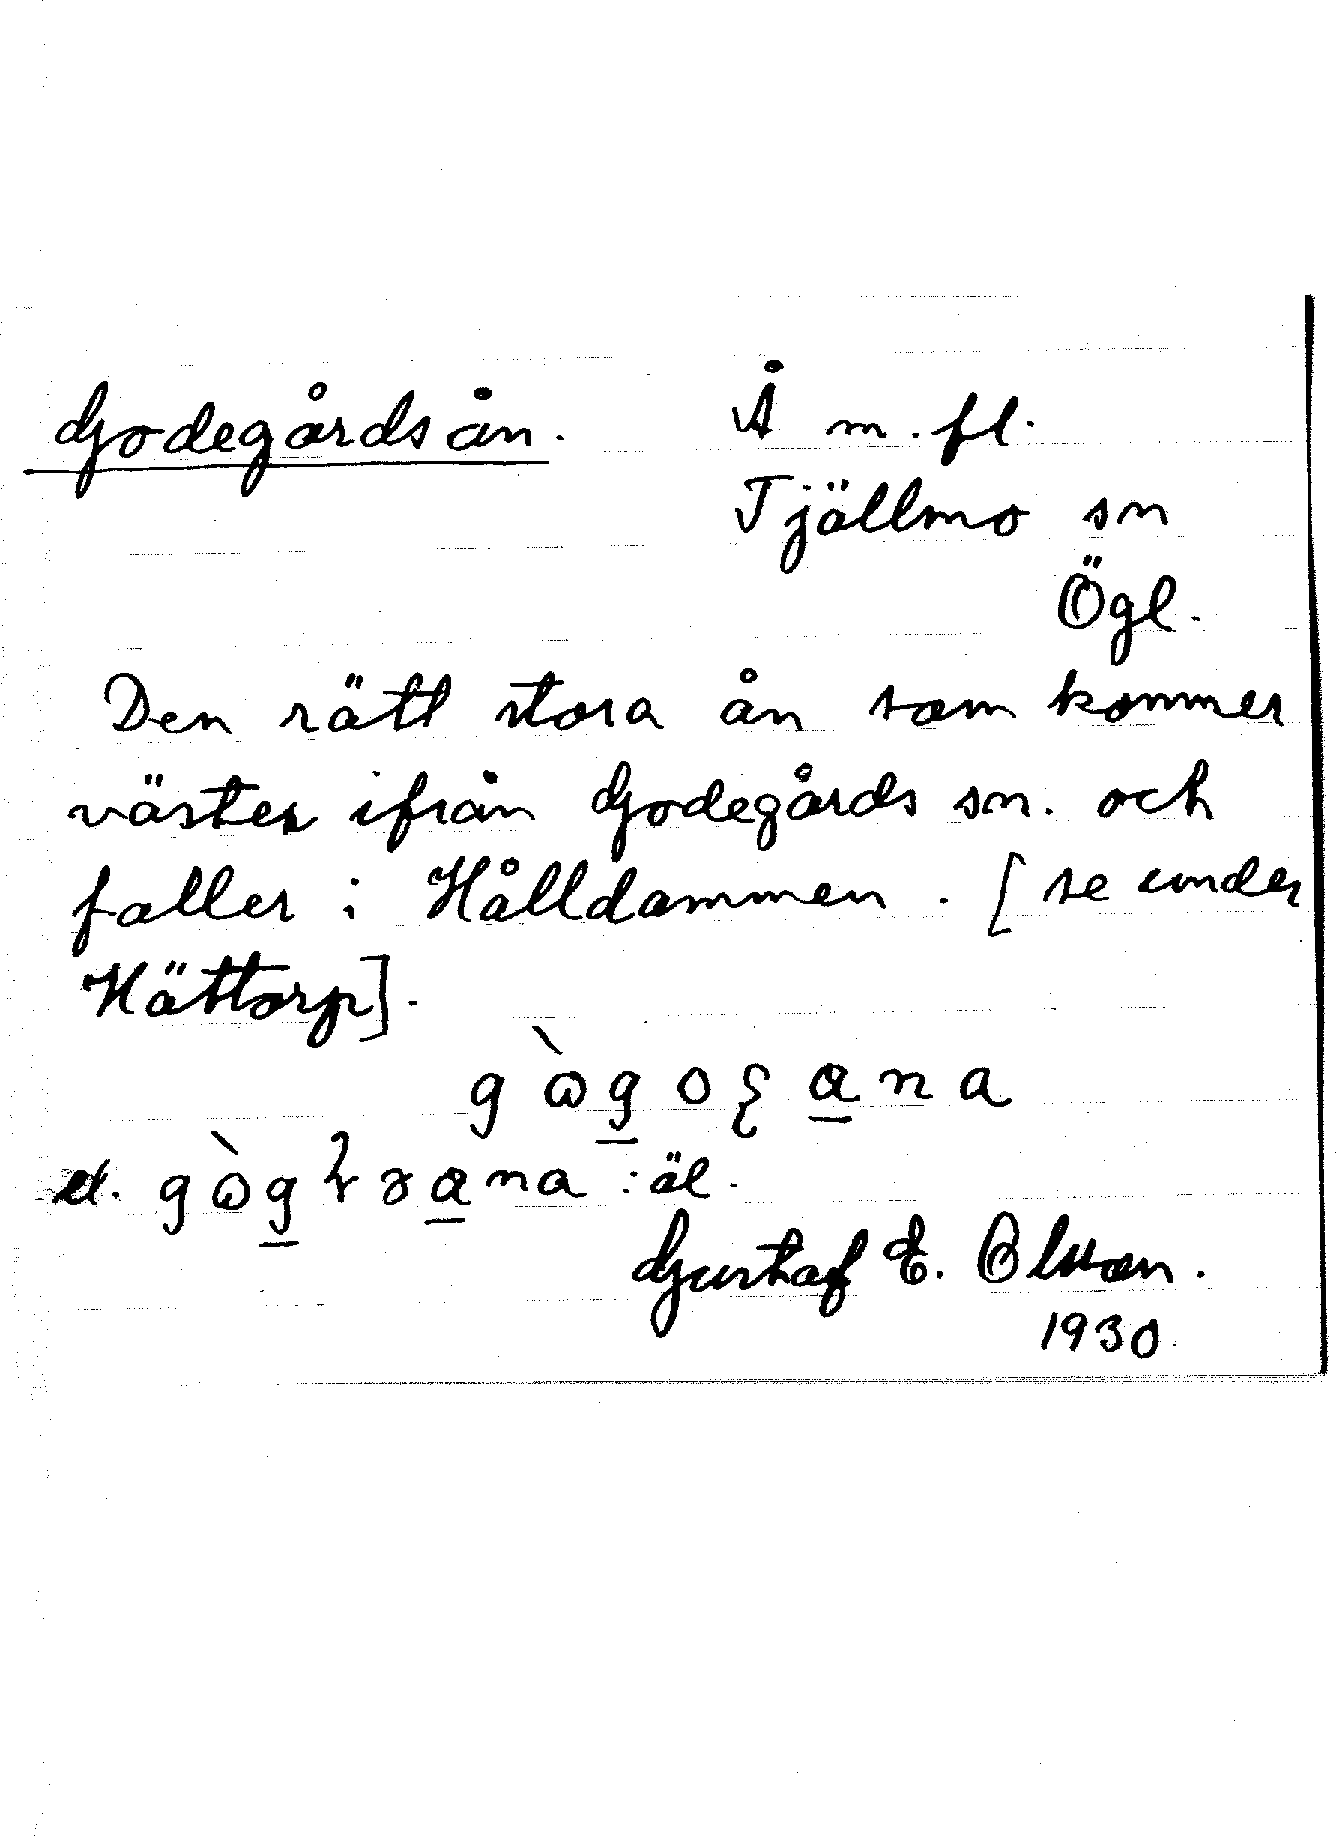 Godegårdsån. Å m.fl.
Tjällmo sn
Ögl.
Den rätt stora ån som kommer
väster ifrån Godegårds sn. och
faller i Hålldammen. [se under
Hättorp].
el. :äl.
Gustaf E. Olsson.
1930